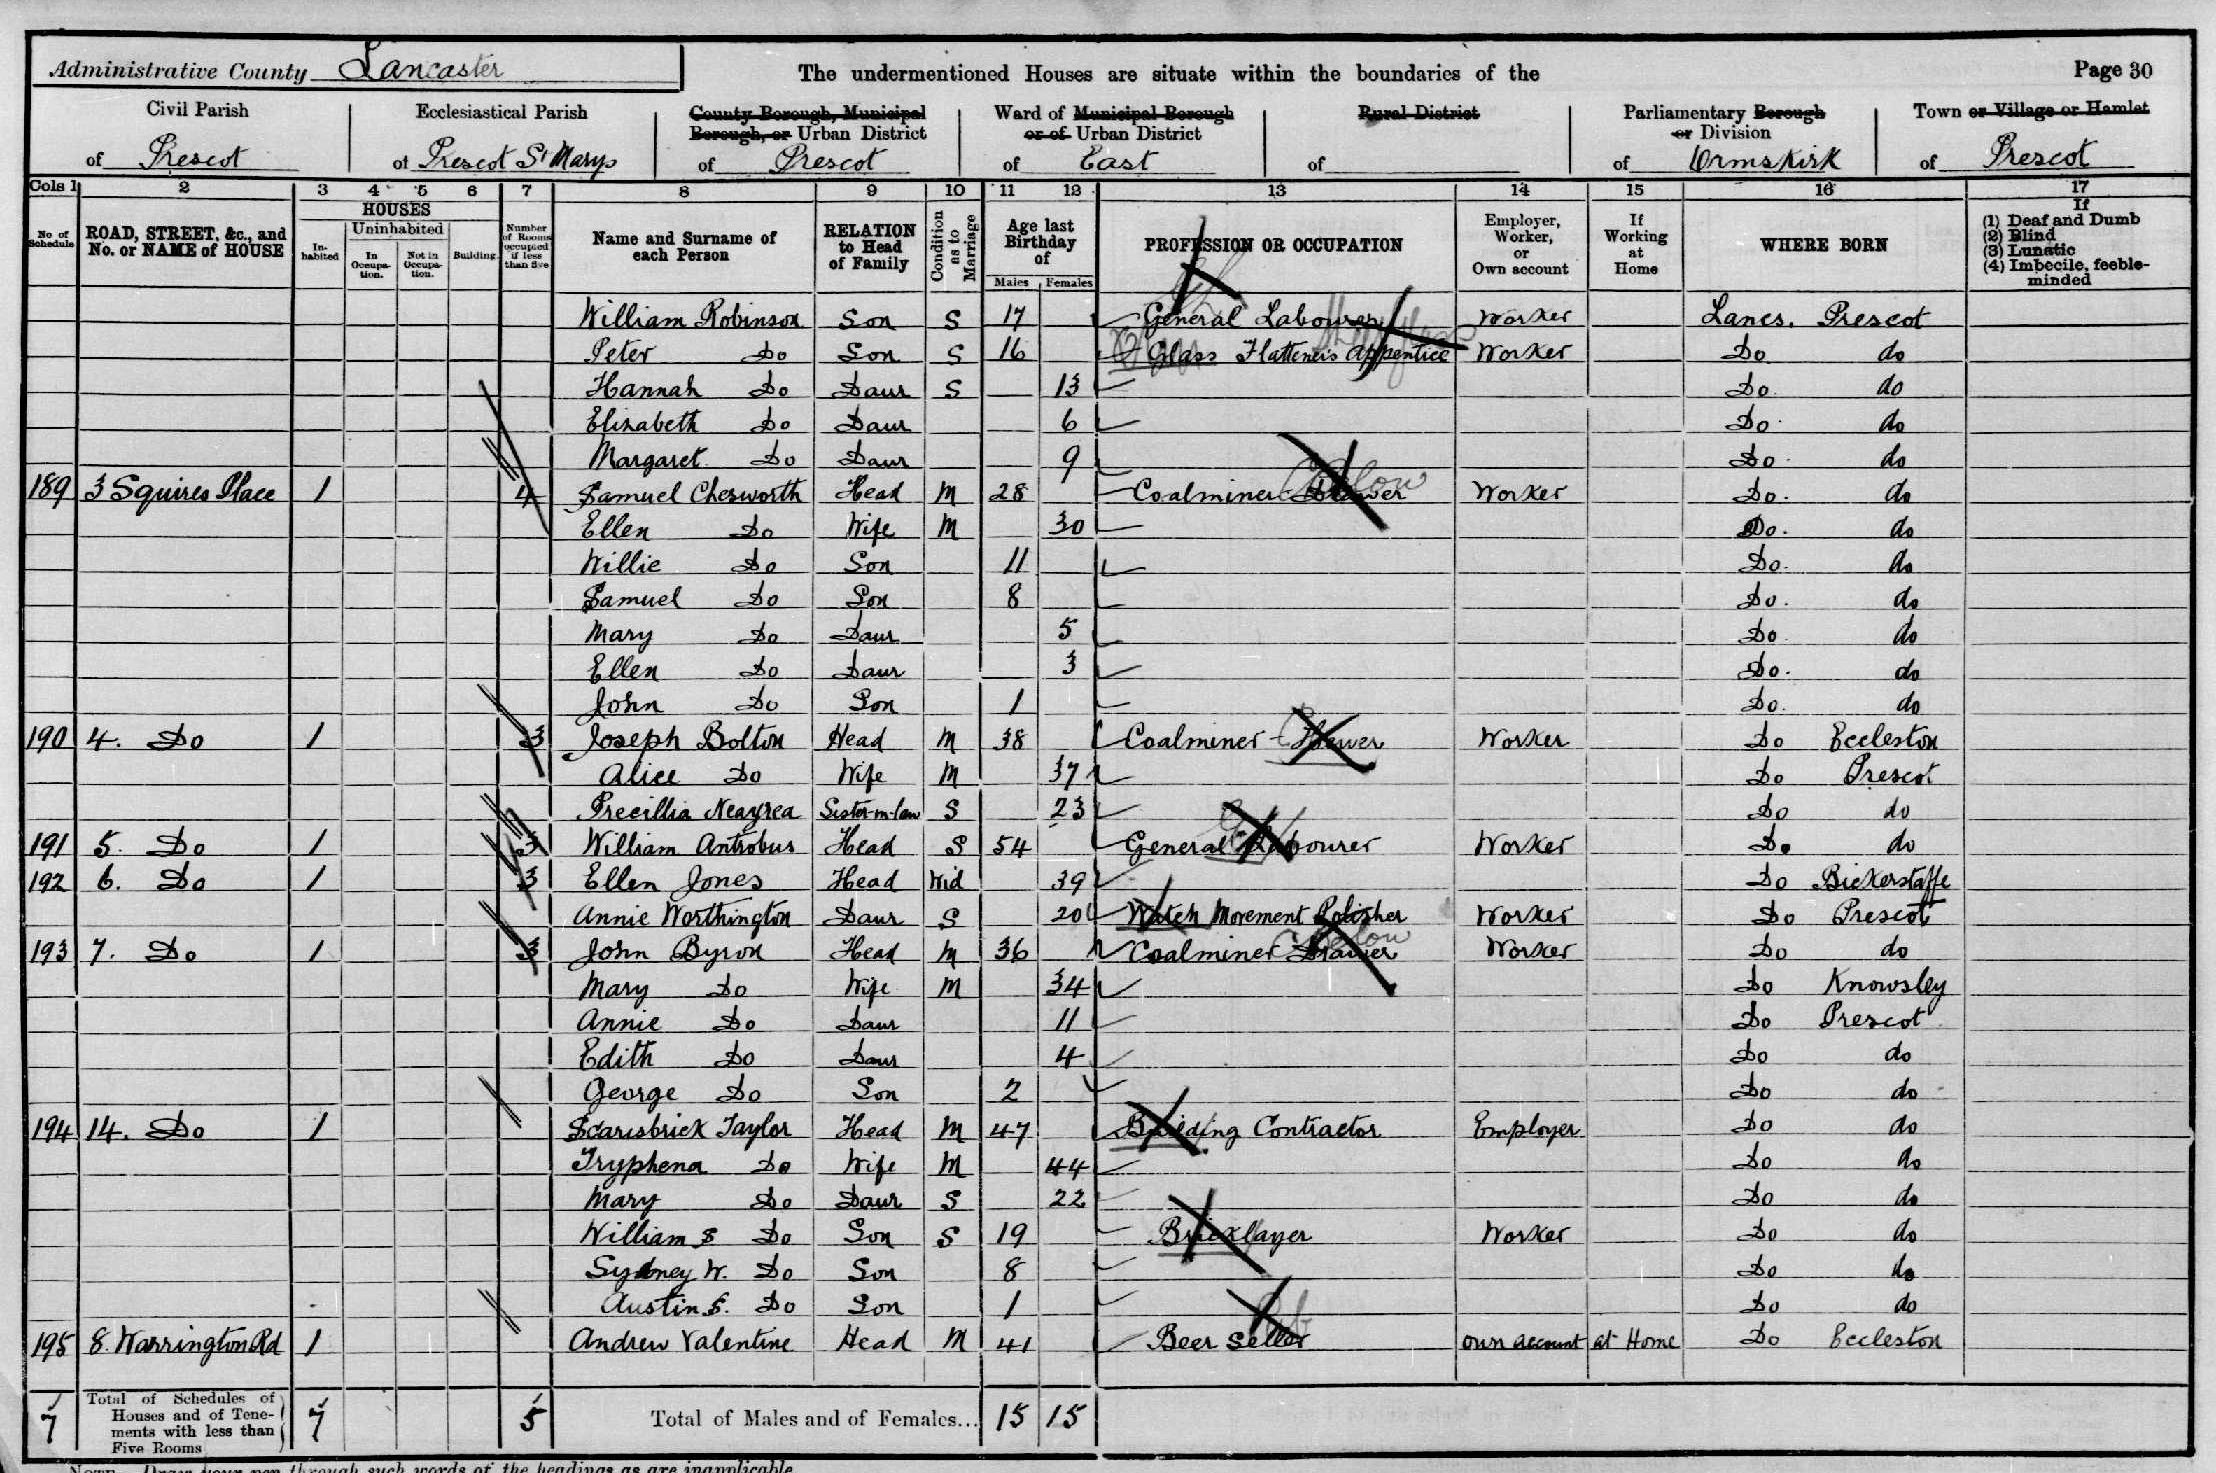 Administrative County Lancaster
The undermentioned Houses are situate within the boundaries of the
Page 30
Civil Parish of Prescot
Ecclesiastical Parish of Prescot St Marys
County Borough, Municipal Borough, or Urban District of Prescot
Ward of Municipal Borough or of Urban District of East
Rural District of
Parliamentary Borough or Division of Ormskirk
Town or Village or Hamlet of Prescot
Cols 1 2 3 4 5 6 7 8 9 10 11 12 13 14 15 16 17
No of Schedule
ROAD, STREET, &c., and No. or NAME of HOUSE
HOUSES
Inhabited
Uninhabited
In Occupation.
Not in Occupation.
Building.
Number of Rooms occupied if less than five
Name and Surname of each Person
RELATION to Head of Family
Condition as to Marriage
Age last Birthday of
Males Females
PROFESSION OR OCCUPATION
Employer, Worker, or Own account
If Working at Home
WHERE BORN
If (1) Deaf and Dumb (2) Blind (3) Lunatic (4) Imbecile, feeble-minded
William Robinson Son S 17 General Labourer Worker Lancs. Prescot
Peter Do Son S 16 Glass Flattener's Apprentice Worker Do do
Hannah Do Daur S 13 Do do
Elizabeth Do Daur 6 Do do
Margaret Do Daur 9 Do do
189 3 Squires Place 1 4 Samuel Chesworth Head M 28 Coalminer Worker Do do
Ellen Do Wife M 30 Do. do
Willie Do Son 11 Do do
Samuel Do Son 8 Do. do
Mary Do Daur 5 Do do
Ellen Do Daur 3 Do. do
John Do Son 1 Do. do
190 4. Do 1 3 Joseph Bolton Head M 38 Coalminer Hewer Worker Do Eccleston
Alice Do Wife M 37 Do Prescot
Precillia Sister-in-law S 23 Do do
191 5. Do 1 3 William Antrobus Head S 54 General Labourer Worker Do do
192 6. Do 1 3 Ellen Jones Head Wid 39 Do Bickerstaffe
Annie Worthington Daur S 20 Watch Movement Polisher Worker Do Prescot
193 7. Do 1 3 John Byron Head M 36 Coalminer Drawer Worker Do do
Mary Do Wife M 34 Do Knowsley
Annie Do Daur 11 Do Prescot
Edith Do Daur 4 Do do
George Do Son 2 Do do
194 14. Do 1 Scarisbrick Taylor Head M 47 Building Contractor Employer Do do
Tryphena Do Wife M 44 Do do
Mary Do Daur S 22 Do do
William S Do Son S 19 Bricklayer Worker Do do
Sydney W. Do Son 8 Do do
Austin S. Do Son 1 Do do
195 8. Warrington Rd 1 Andrew Valentine Head M 41 Beer Seller own account at Home Do Eccleston
7 Total of Schedules of Houses and of Tenements with less than Five Rooms 7 5 Total of Males and of Females... 15 15
NOTE. Draw your pen through such words of the headings as are inapplicable